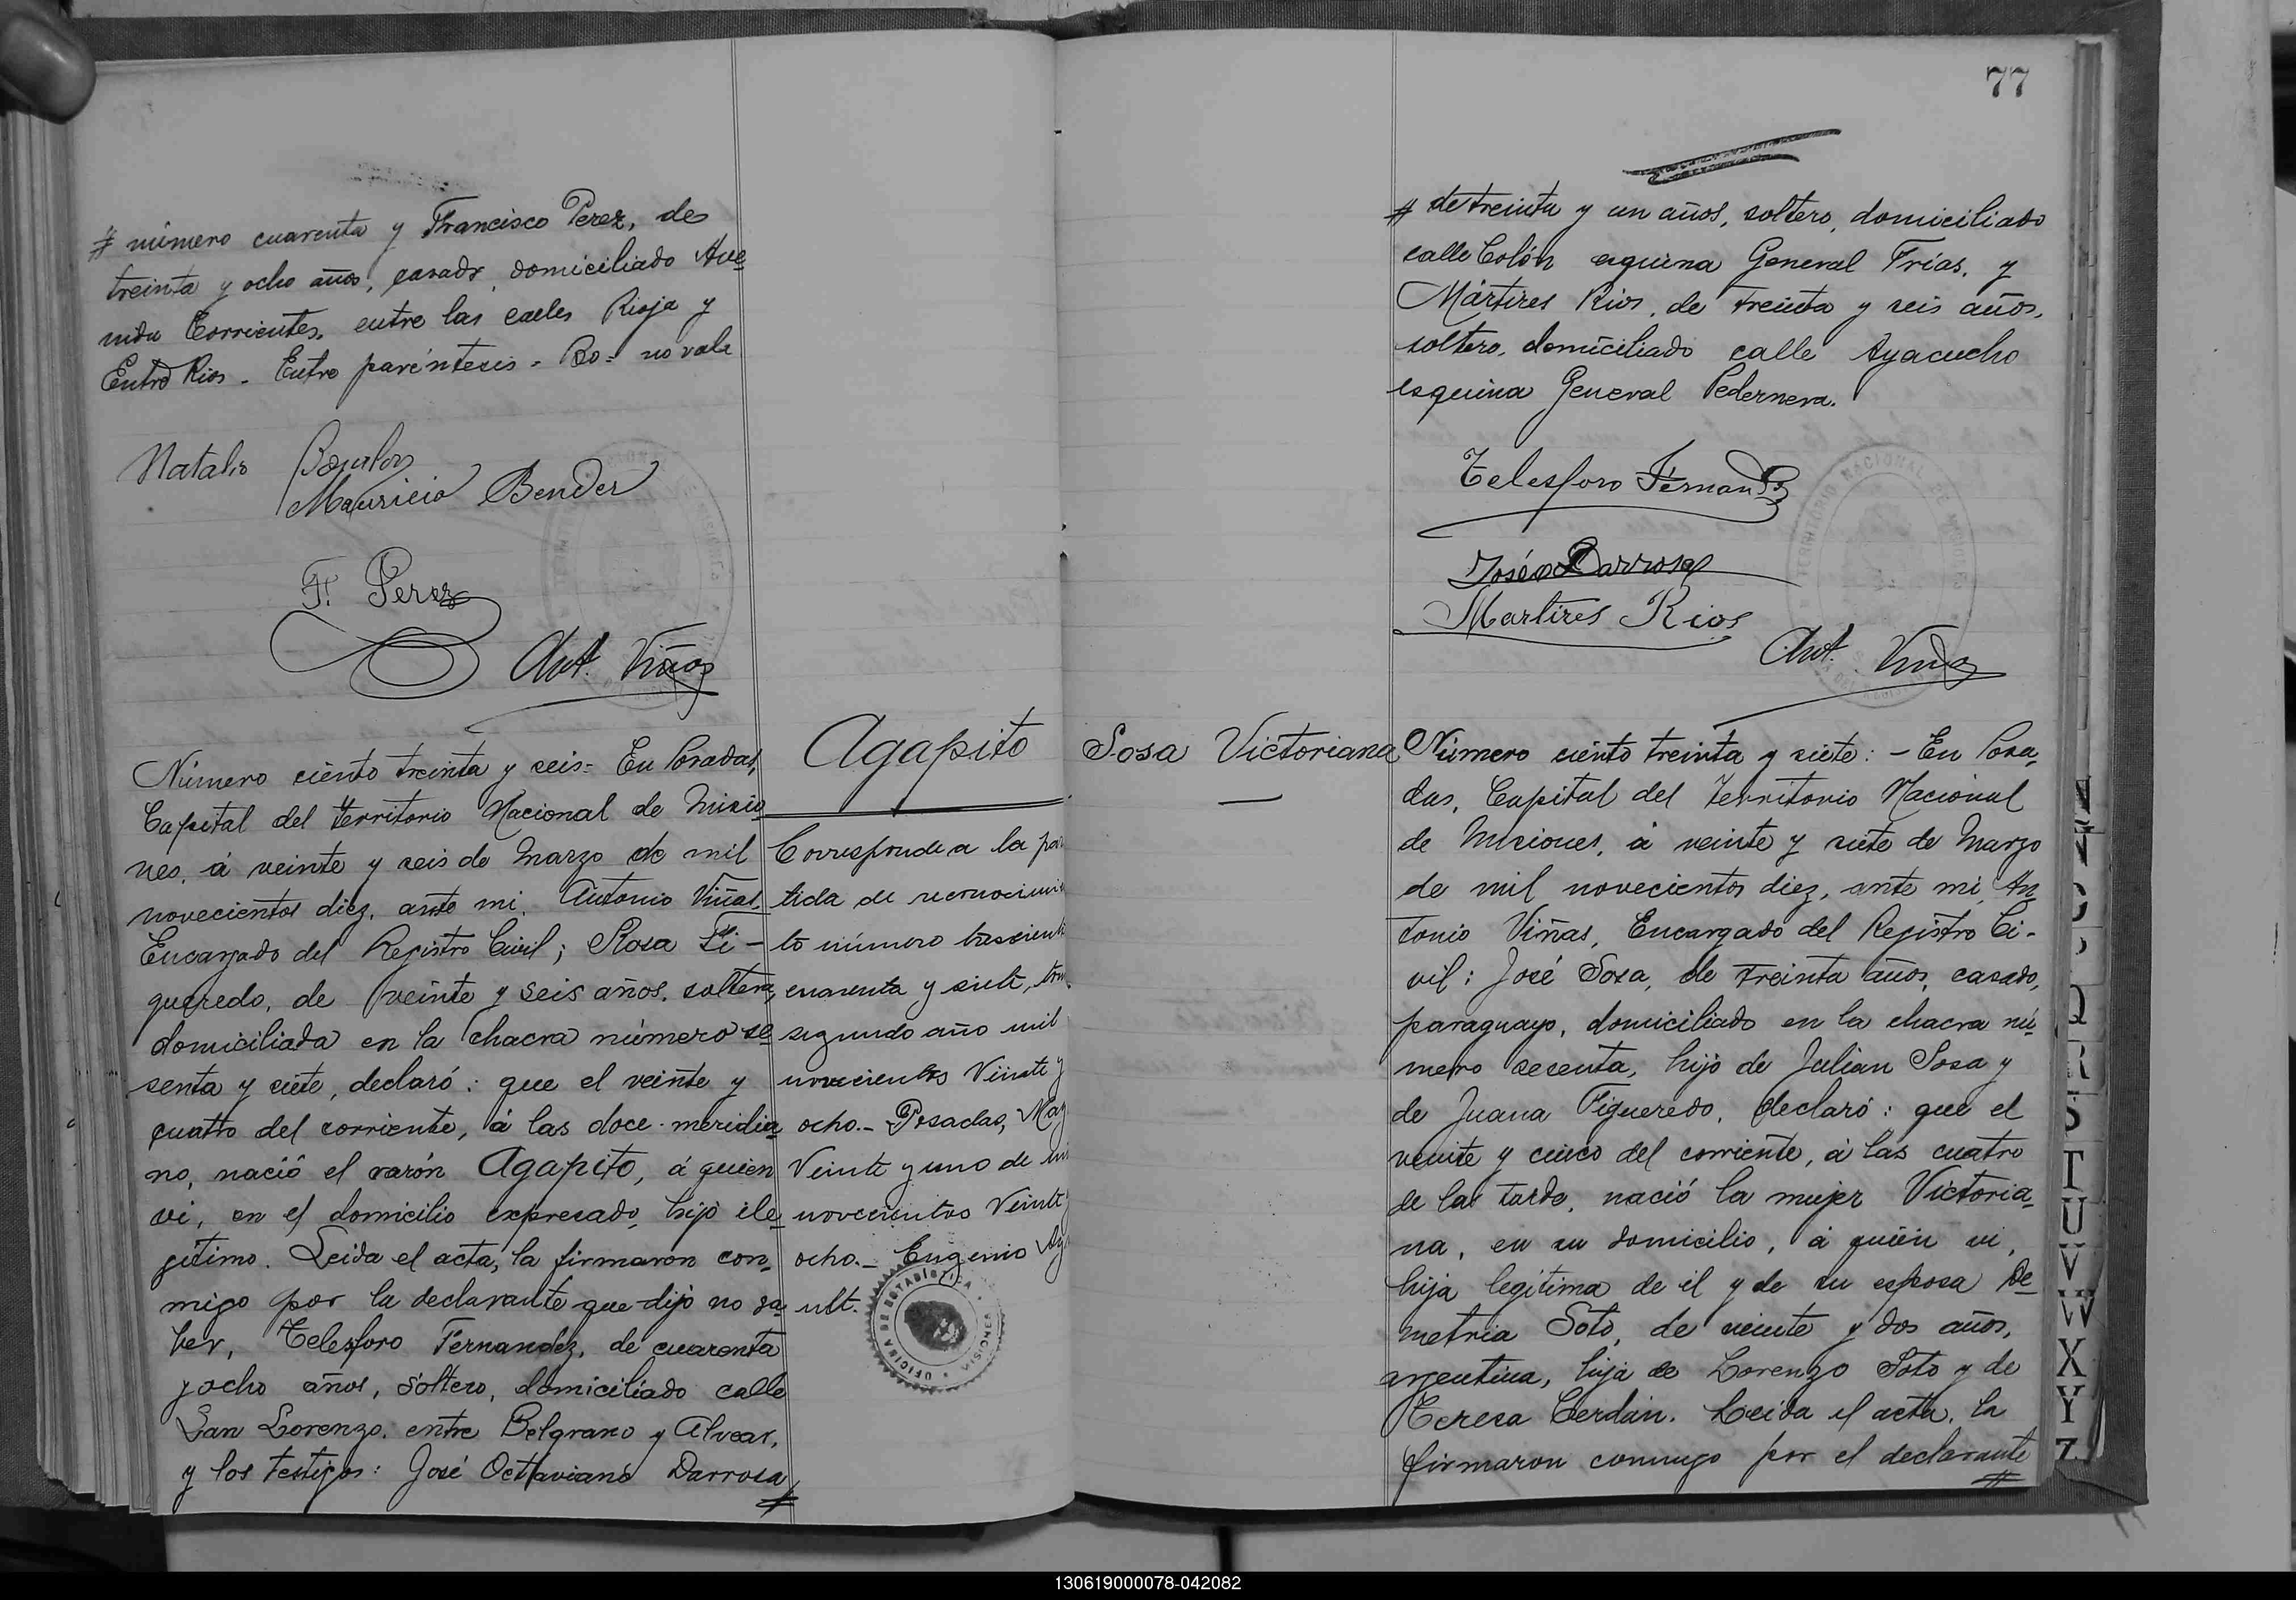 # número cuarenta y Francisco Perez, de
treinta y ocho años, casado, domiciliado Ave-
nida Corrientes, entre las calles Rioja y
Entre Rios. Entre paréntesis - Bo = no vale
Natalio
Mauricio Bender
F. Perez
Ant. Viñas
Número ciento treinta y seis = En Posadas,
Capital del Territorio Nacional de Misio-
nes, á veinte y seis de Marzo de mil
novecientos diez, ante mi, Antonio Viñas,
Encargado del Registro Civil; Rosa Fi-
gueredo, de veinte y seis años, soltera,
domiciliada en la chacra número se-
senta y siete, declaró: que el veinte y
cuatro del corriente, á las doce meridia-
no, nació el varón Agapito, á quien
vi, en el domicilio expresado, hijo ile-
gítimo. Leida el acta, la firmaron con-
migo por la declarante que dijo no sa-
ber, Telesforo Fernandez, de cuarenta
y ocho años, soltero, domiciliado calle
San Lorenzo, entre Belgrano y Alvear,
y los testigos: José Octaviano Darrosa,
#
Agapito
Corresponde a la par
tida de reconocimie
to número trescient
cuarenta y siete, tom
segundo año mil
novecientos Veinte y
ocho.- Posadas, May
Veinte y uno de mi
novecientos Veinte y
ocho.- Eugenio
ult.
OFICINA DE ESTADÍSTICA · MISIONES
77
# de treinta y un años, soltero, domiciliado
calle Colón esquina General Frías, y
Mártires Rios, de treinta y seis años,
soltero, domiciliado calle Ayacucho
esquina General Pedernera.
Telesforo Fernandz
José O Darrosa
Martires Rios
Ant. Viñas
Sosa Victoriana
Número ciento treinta y siete: - En Posa-
das, Capital del Territorio Nacional
de Misiones, á veinte y siete de Marzo
de mil novecientos diez, ante mi, An-
tonio Viñas, Encargado del Registro Ci-
vil: José Sosa, de treinta años, casado,
paraguayo, domiciliado en la chacra nú-
mero sesenta, hijo de Julian Sosa y
de Juana Figueredo, declaró: que el
veinte y cinco del corriente, á las cuatro
de la tarde, nació la mujer Victoria-
na, en su domicilio, á quién vi,
hija legítima de él y de su esposa De-
metria Soto, de veinte y dos años,
argentina, hija de Lorenzo Soto y de
Teresa Cerdán. Leida el acta, la
firmaron conmigo por el declarante
#
Q
R
S
T
U
V
W
X
Y
Z
130619000078-042082